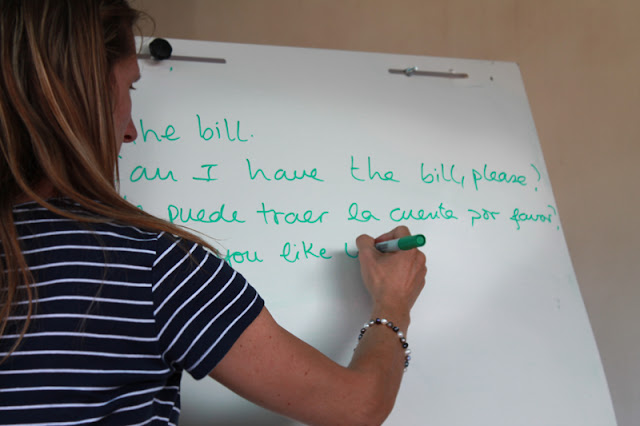 the bill.
Can I have the bill, please?
puede traer la cuenta por favor?
you like